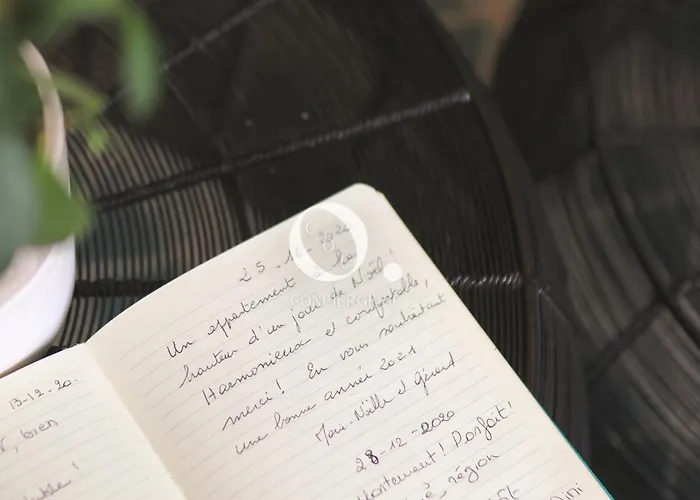 13-12-20.
bien
!
25-12-2020
Un appartement à la
hauteur d'un jour de Noël !
Harmonieux et confortable,
merci ! En vous souhaitant
une bonne année 2021
Marie-Noëlle et Gérard
28-12-2020
! Parfait !
région
CONCIERGERIE